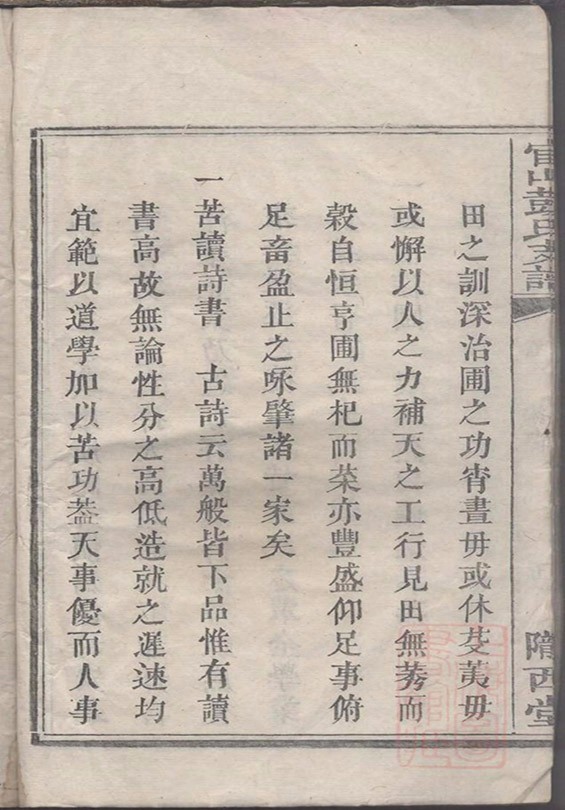 官山彭氏支譜
隴西堂
田之訓深治圃之功宵晝毋或休芟荑毋
或懈以人之力補天之工行見田無莠而
榖自恒亨圃無杞而菜亦豐盛仰足事俯
足畜盈止之咏肇諸一家矣
一苦讀詩書　古詩云萬般皆下品惟有讀
書高故無論性分之高低造就之遲速均
宜範以道學加以苦功葢天事優而人事